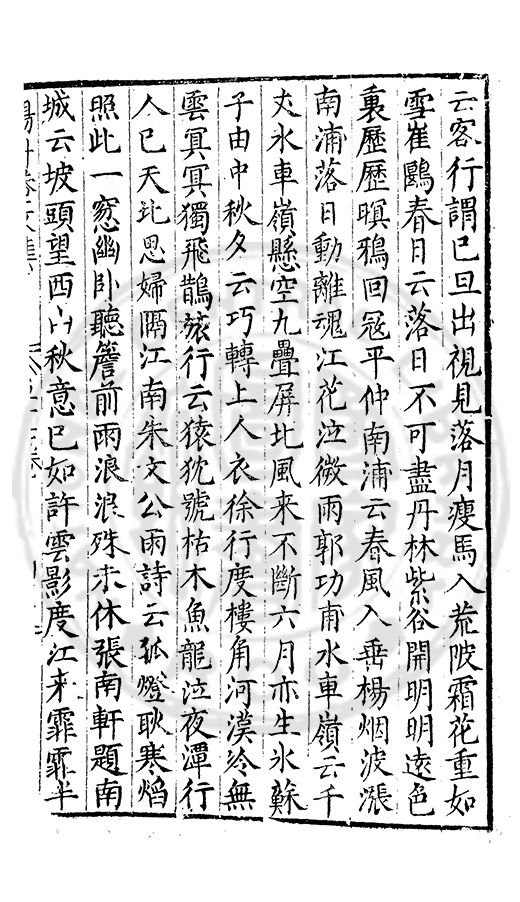 云客行謂已旦出視見落月瘦馬入荒陂霜花重如
雪崔鷗春日云落日不可盡丹林紫谷開明明遠色
裏歷歷暝鴉回冦平仲南浦云春風入垂楊烟波漲
南浦落日動離魂江花泣微雨郭功甫水車嶺云千
丈水車嶺懸空九疊屏北風来不斷六月亦生氷蘇
子由中秋夕云巧轉上人衣徐行度樓角河漢冷無
雲冥冥獨飛鵲旅行云猿狖號枯木魚龍泣夜潭行
人已天北思婦隔江南朱文公雨詩云孤燈耿寒熖
照此一窓幽卧聽簷前雨浪浪殊未休張南軒題南
城云坡頭望西山秋意已如許雲影度江来霏霏半